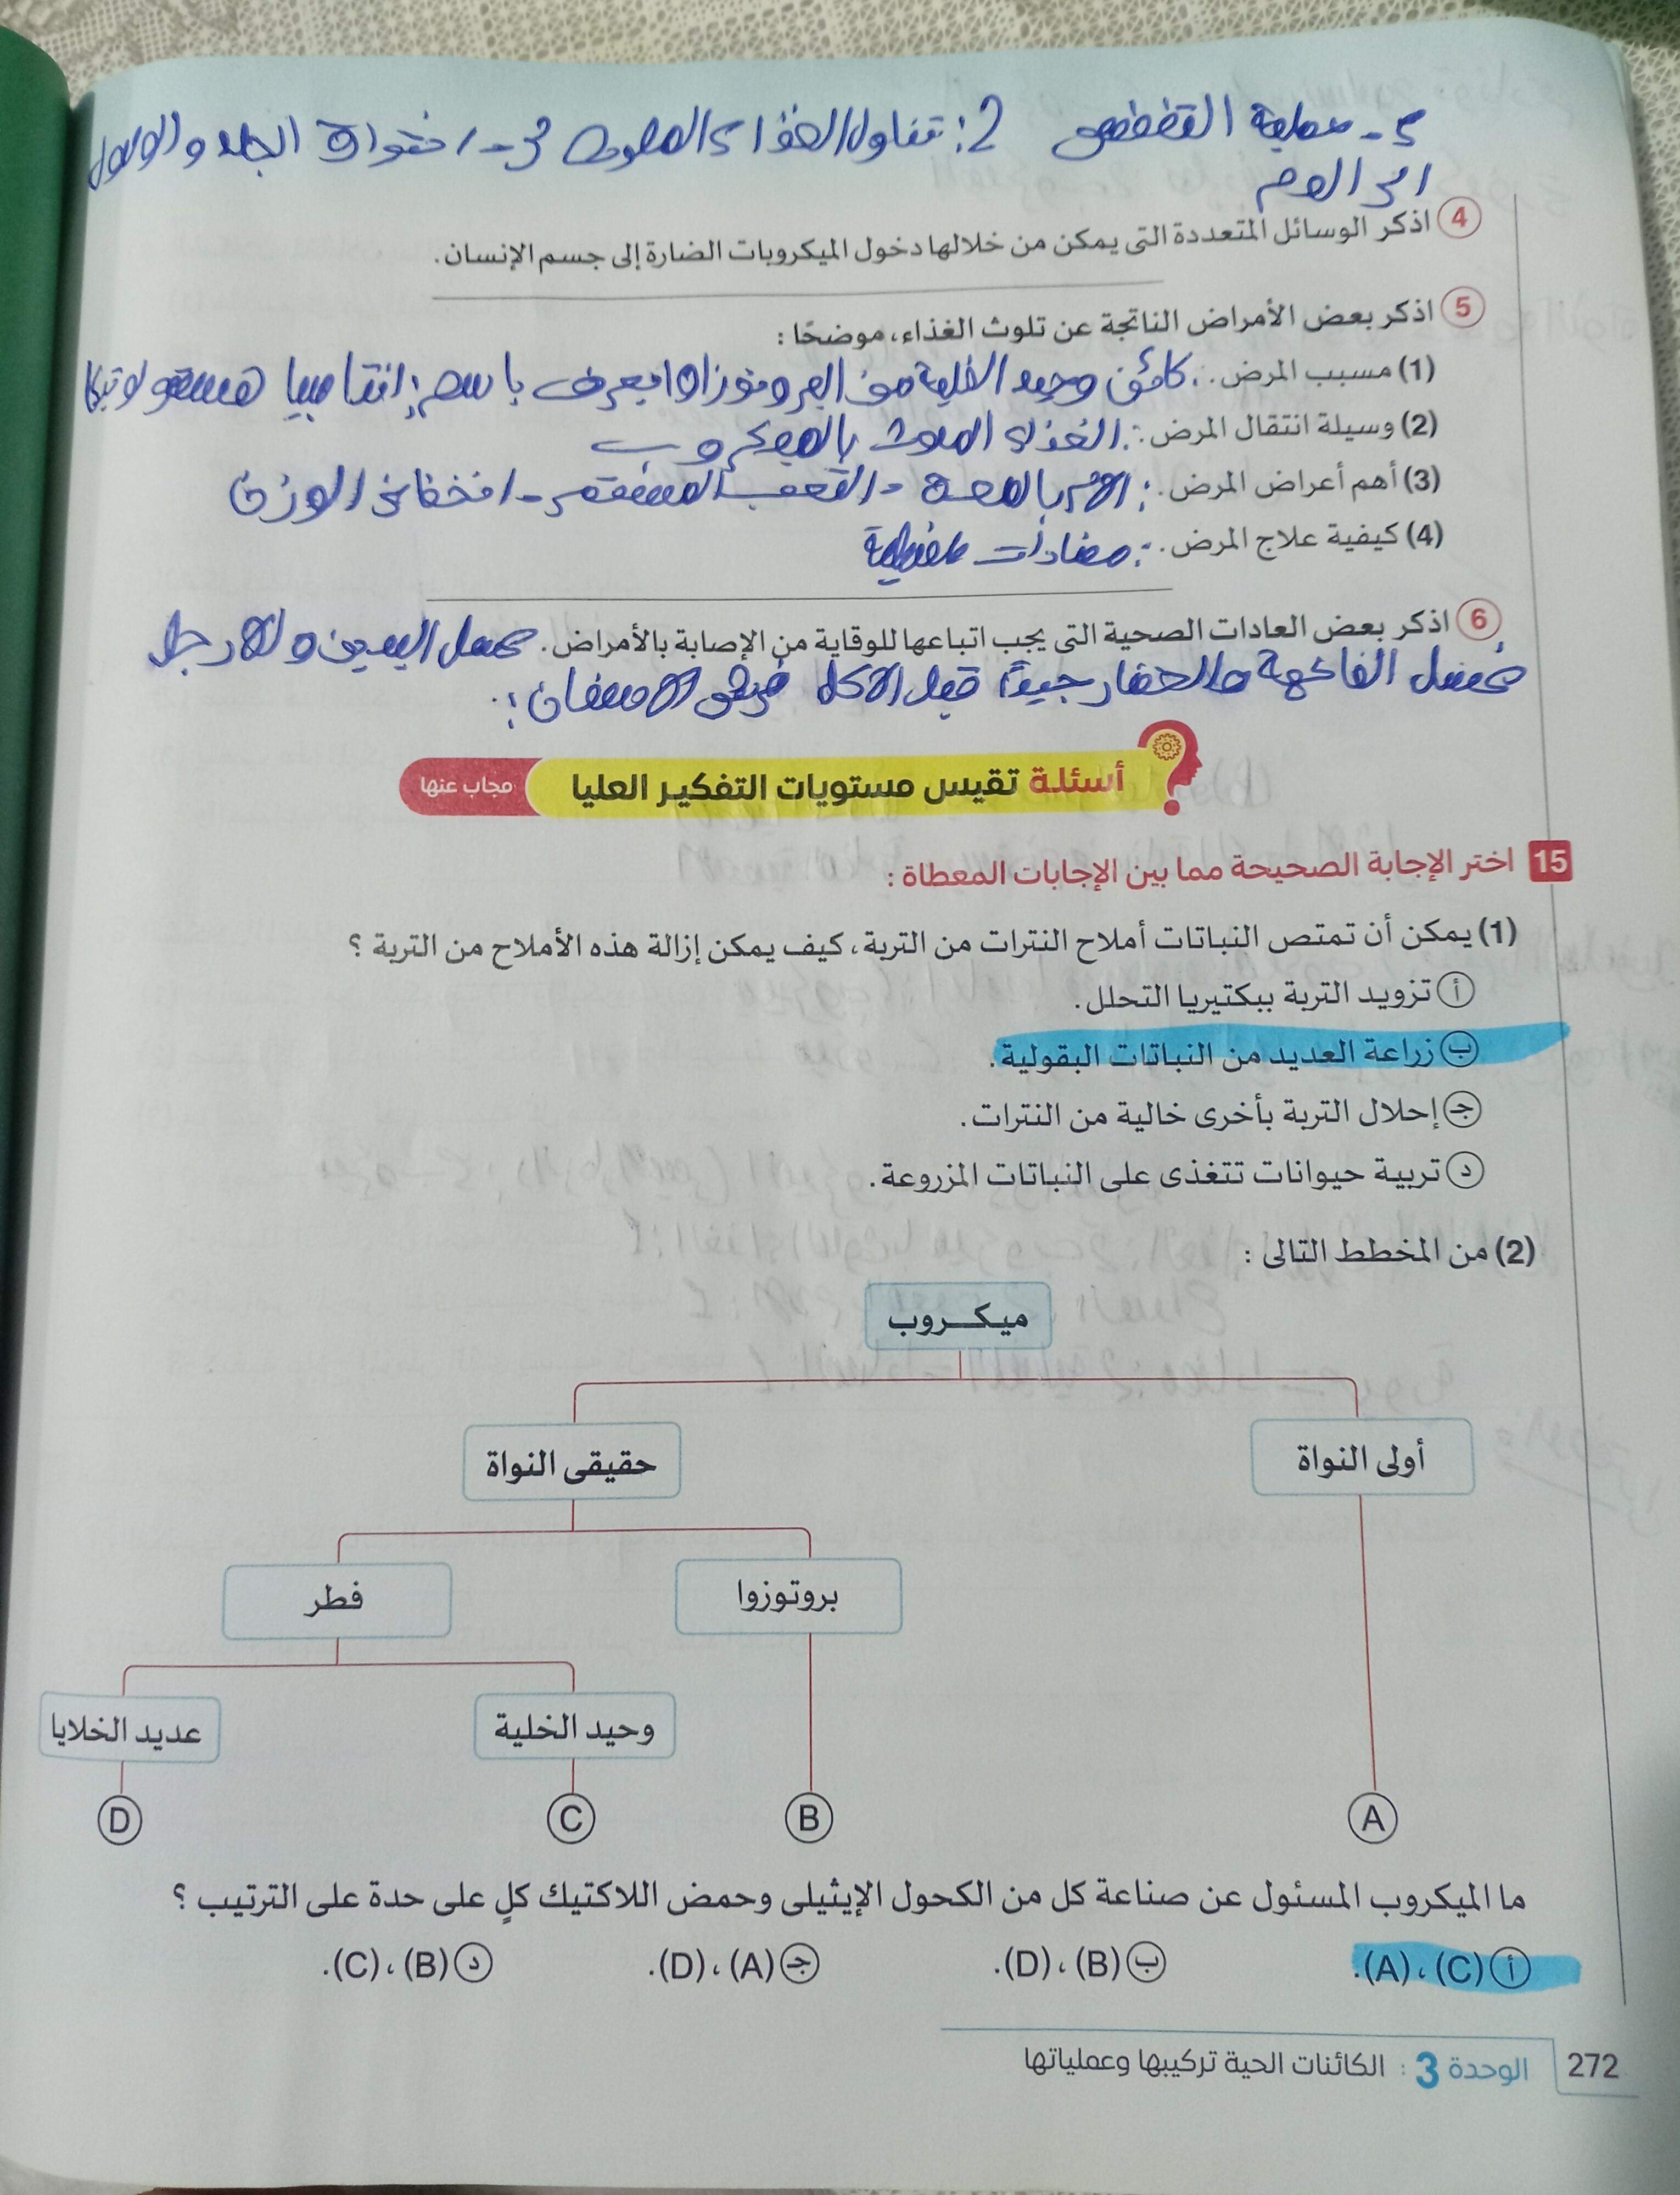 عملية التنفس 2: تناول الغذاء الملوث 3- اختراق الجلد والوصول
الى الدم
4 اذكر الوسائل المتعددة التى يمكن من خلالها دخول الميكروبات الضارة إلى جسم الإنسان.
5 اذكر بعض الأمراض الناتجة عن تلوث الغذاء، موضحًا :
(1) مسبب المرض. كائن وحيد الخلية من البروتوزاوا يعرف باسم: انتاميبا هستولوتيكا
(2) وسيلة انتقال المرض. : الغذاء الملوث بالميكروب
(3) أهم أعراض المرض. : الام بالمعدة - التعب المستمر - انخفاض الوزن
(4) كيفية علاج المرض. : مضادات طفيلية
6 اذكر بعض العادات الصحية التى يجب اتباعها للوقاية من الإصابة بالأمراض. غسل اليدين والارجل
غسل الفاكهة والخضار جيدًا قبل الاكل فرش الاسنان:
أسئلة تقيس مستويات التفكير العليا مجاب عنها
15 اختر الإجابة الصحيحة مما بين الإجابات المعطاة :
(1) يمكن أن تمتص النباتات أملاح النترات من التربة، كيف يمكن إزالة هذه الأملاح من التربة ؟
أ تزويد التربة ببكتيريا التحلل.
ب زراعة العديد من النباتات البقولية.
ج إحلال التربة بأخرى خالية من النترات.
د تربية حيوانات تتغذى على النباتات المزروعة.
(2) من المخطط التالى :
ميكـــروب
أولى النواة حقيقى النواة
بروتوزوا فطر
وحيد الخلية عديد الخلايا
A B C D
ما الميكروب المسئول عن صناعة كل من الكحول الإيثيلى وحمض اللاكتيك كلٍ على حدة على الترتيب ؟
أ (C)، (A). ب (B)، (D). ج (A)، (D). د (B)، (C).
272 الوحدة 3 : الكائنات الحية تركيبها وعملياتها